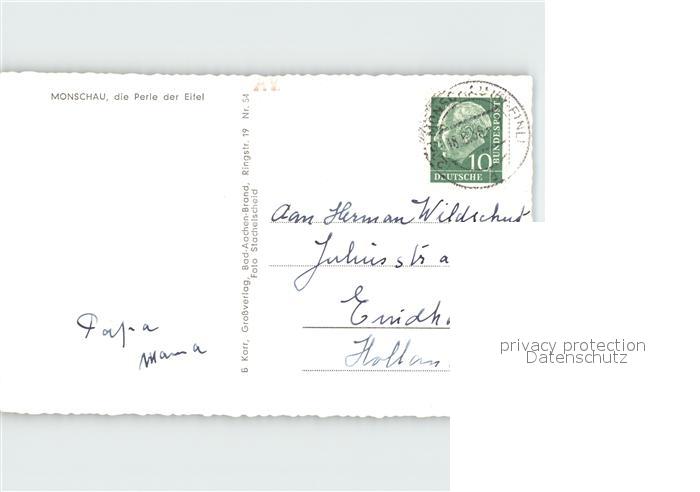 MONSCHAU, die Perle der Eifel
B Karr, Großverlag, Bad-Aachen-Brand, Ringstr. 19 Nr. 54
Foto Stachelscheid
10
DEUTSCHE
BUNDESPOST
Aan Herman Wildschut
Juliusstra
Eindh
Hollan
Papa
Mama
privacy protection
Datenschutz